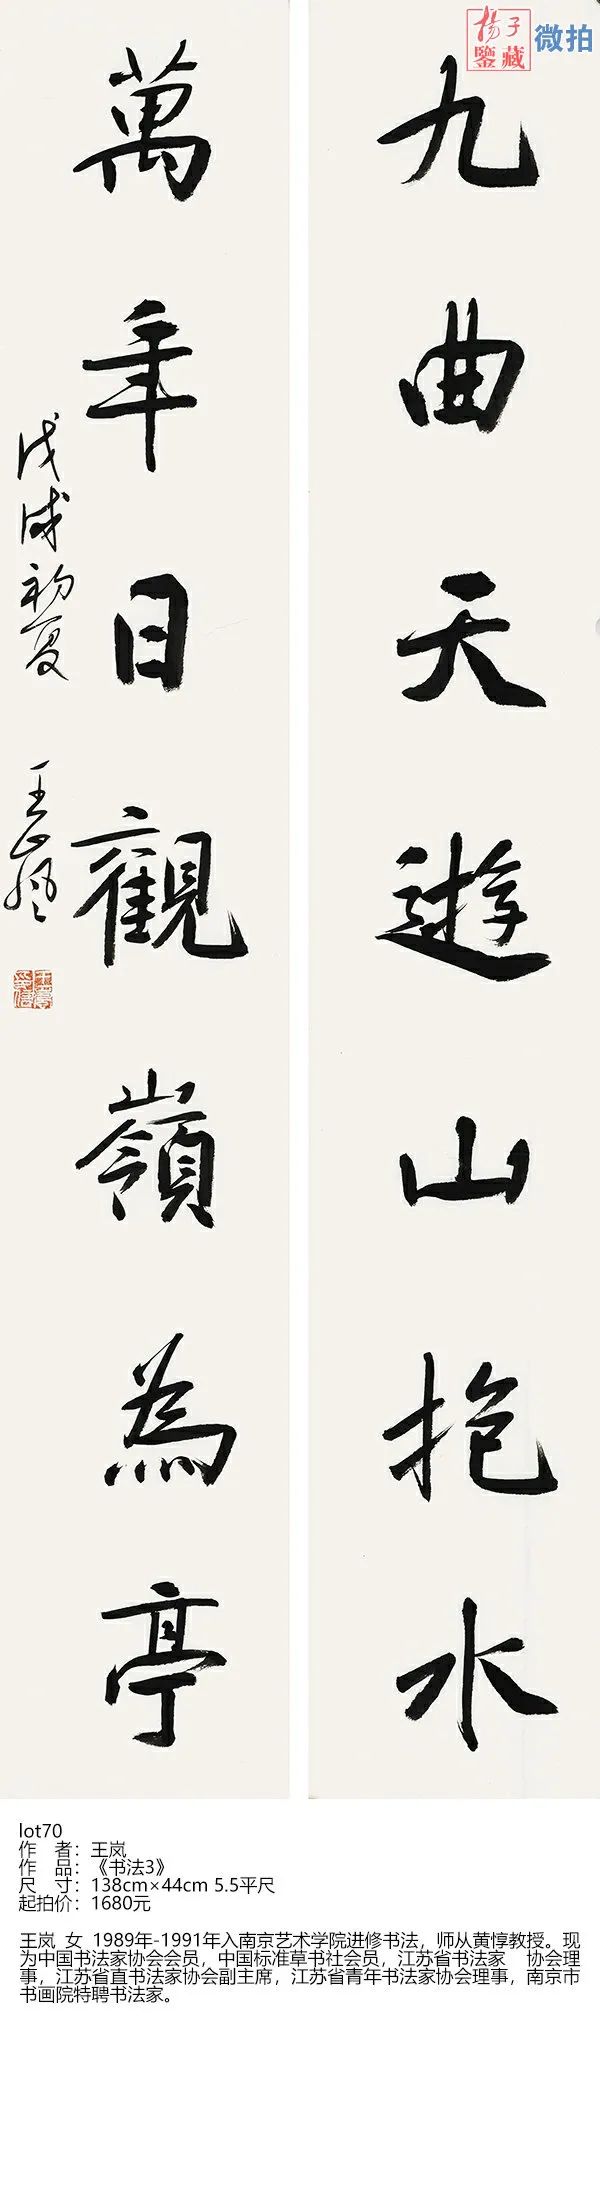 揚子
鑒藏
微拍
九曲天遊山抱水
萬年日觀嶺為亭
戊戌初夏
王岚
lot70
作 者：王岚
作 品：《书法3》
尺 寸：138cm×44cm 5.5平尺
起拍价：1680元
王岚 女 1989年-1991年入南京艺术学院进修书法，师从黄惇教授。现
为中国书法家协会会员，中国标准草书社会员，江苏省书法家 协会理
事，江苏省直书法家协会副主席，江苏省青年书法家协会理事，南京市
书画院特聘书法家。